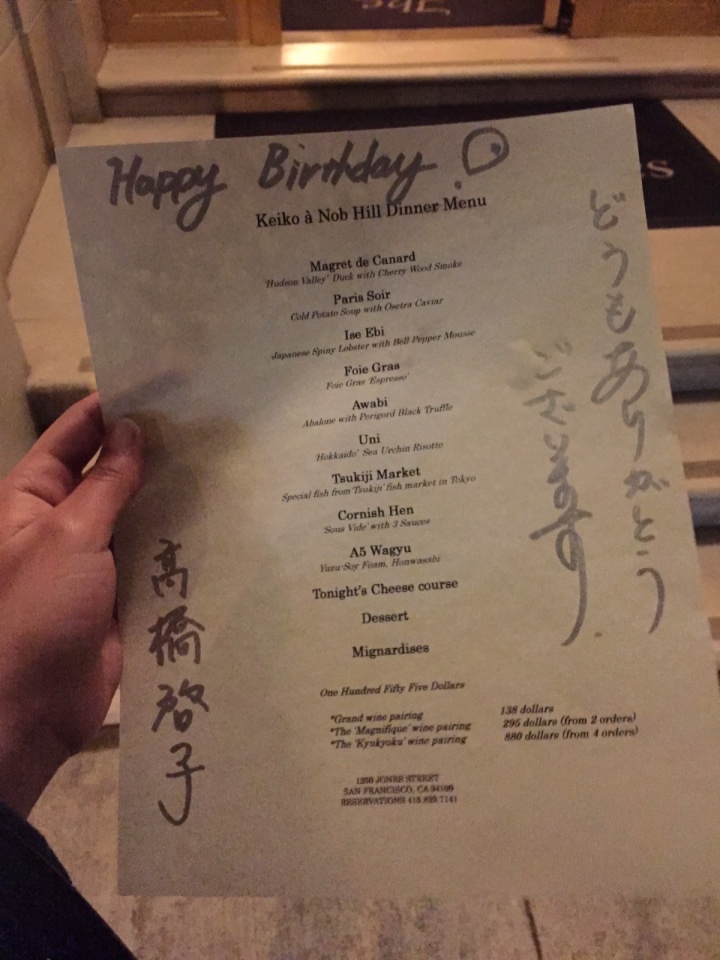 Happy Birthday
Keiko à Nob Hill Dinner Menu
Magret de Canard
'Hudson Valley' Duck with Cherry Wood Smoke
Paris Soir
Cold Potato Soup with Osetra Caviar
Ise Ebi
Japanese Spiny Lobster with Bell Pepper Mousse
Foie Gras
Foie Gras 'Espresso'
Awabi
Abalone with Perigord Black Truffle
Uni
'Hokkaido' Sea Urchin Risotto
Tsukiji Market
Special fish from 'Tsukiji' fish market in Tokyo
Cornish Hen
'Sous Vide' with 3 Sauces
A5 Wagyu
Yuzu-Soy Foam, Honwasabi
Tonight's Cheese course
Dessert
Mignardises
One Hundred Fifty Five Dollars
*Grand wine pairing 138 dollars
*The 'Magnifique' wine pairing 295 dollars (from 2 orders)
*The 'Kyukyoku' wine pairing 880 dollars (from 4 orders)
1250 JONES STREET
SAN FRANCISCO, CA 94109
RESERVATIONS 415.829.7141
どうもありがとう
ございます
高橋啓子